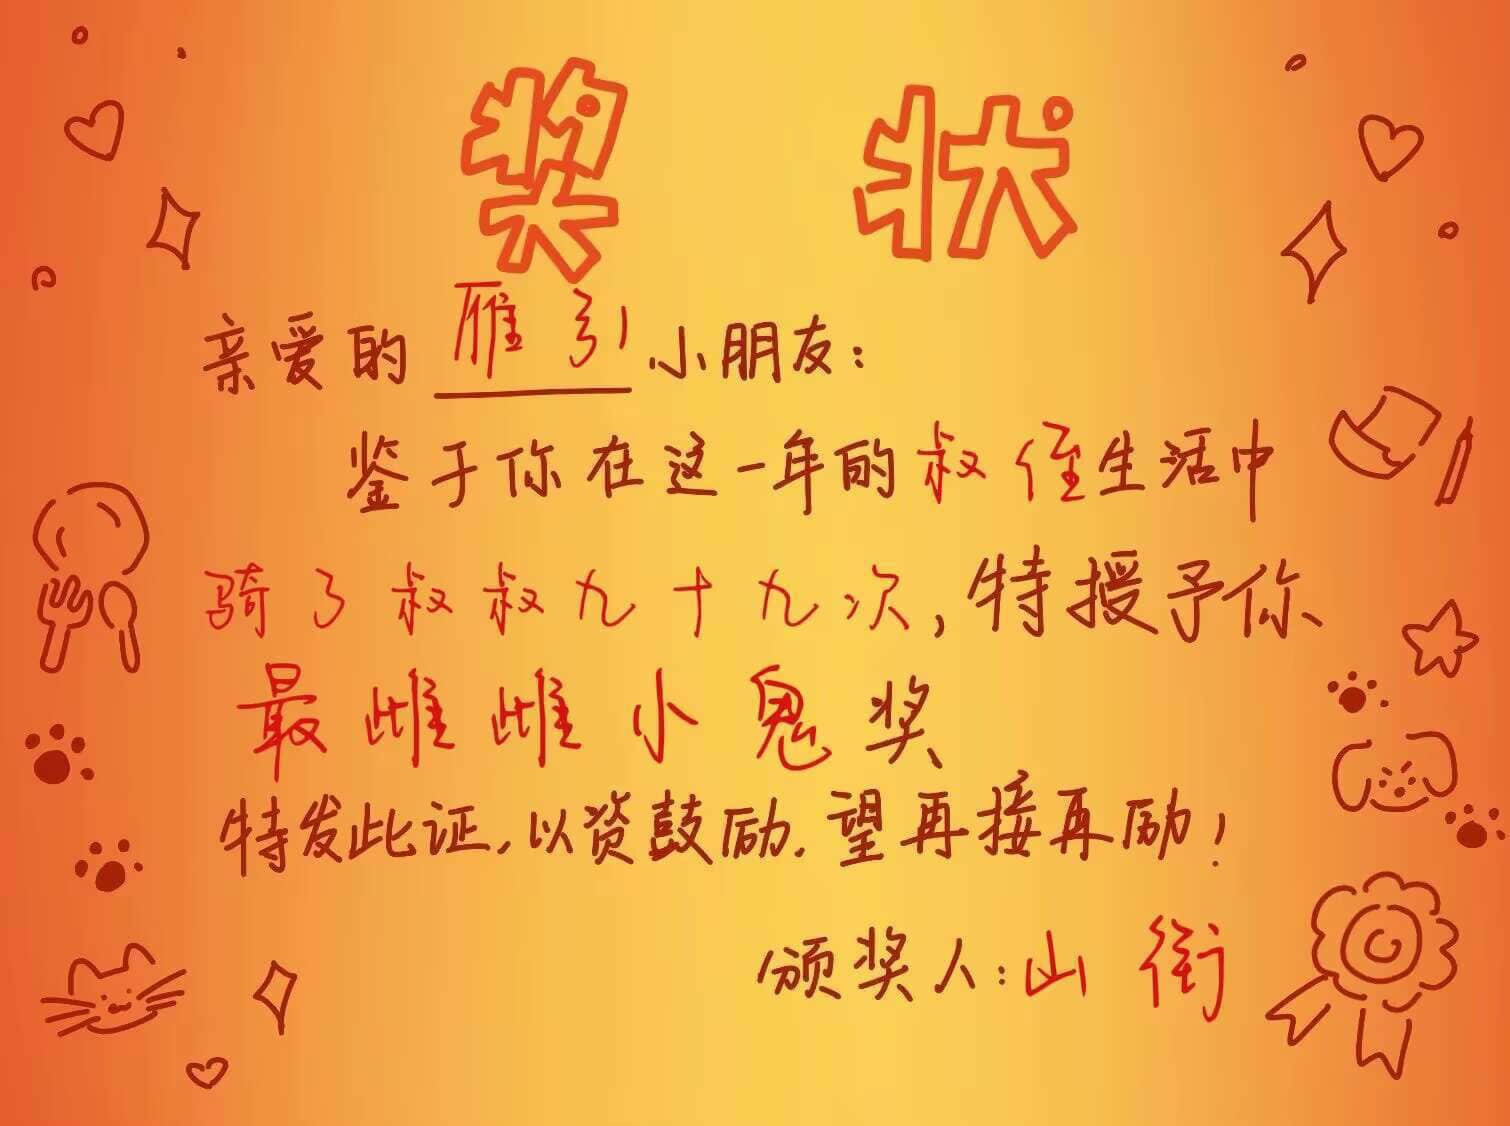 奖状
亲爱的雁引小朋友：
鉴于你在这一年的叔侄生活中
骑了叔叔九十九次，特授予你
最雌雌小鬼奖
特发此证，以资鼓励，望再接再励！
颁奖人：山街